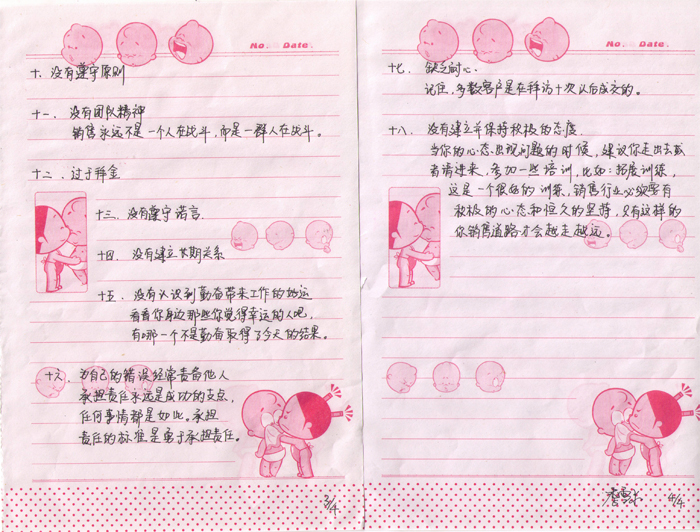 No. Date.
十. 没有遵守原则
十一. 没有团队精神
销售永远不是一个人在战斗，而是一群人在战斗。
十二. 过于拜金
十三. 没有遵守诺言
十四. 没有建立长期关系
十五. 没有认识到勤奋带来工作的好运
看看你身边那些你觉得幸运的人吧，
有哪一个不是勤奋取得了今天的结果。
十六. 为自己的错误经常责备他人
承担责任永远是成功的支点，
任何事情都是如此。承担
责任的标准是勇于承担责任。
3/4
No. Date.
十七. 缺乏耐心.
记住，多数客户是在拜访十次以后成交的。
十八. 没有建立并保持积极的态度.
当你的心态出现问题的时候，建议你走出去或
者请进来，参加一些培训，比如：拓展训练，
这是一个很好的训练，销售行业必须要有
积极的心态和恒久的坚持，只有这样的
你销售道路才会越走越远。
4/4